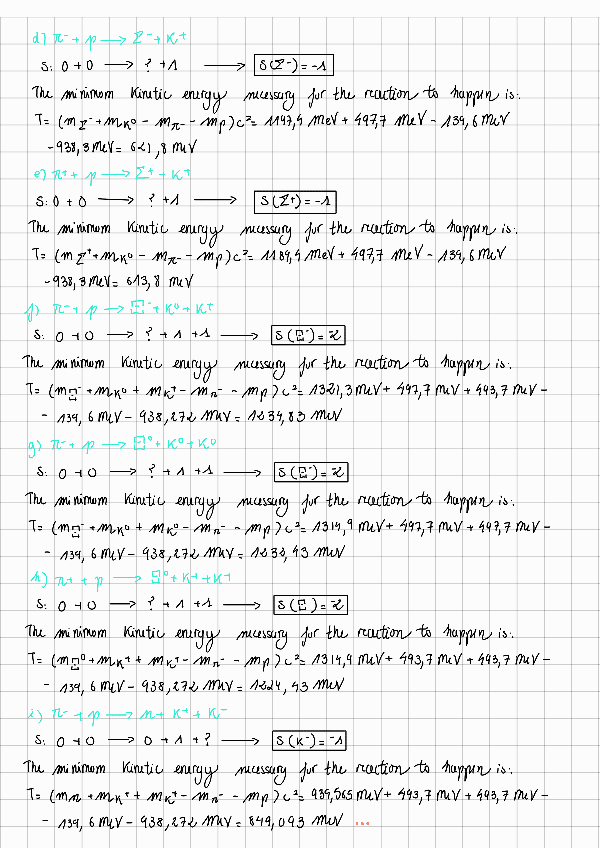 d) π⁻ + p → Σ⁻ + K⁺
S: 0 + 0 → ? + 1 → S(Σ⁻) = -1
The minimum kinetic energy necessary for the reaction to happen is:
T = (mΣ⁻ + mK⁰ - mπ⁻ - mp)c² = 1197,4 MeV + 497,7 MeV - 139,6 MeV
- 938,3 MeV = 621,8 MeV
e) π⁺ + p → Σ⁺ + K⁺
S: 0 + 0 → ? + 1 → S(Σ⁺) = -1
The minimum kinetic energy necessary for the reaction to happen is:
T = (mΣ⁺ + mK⁰ - mπ⁻ - mp)c² = 1189,4 MeV + 497,7 MeV - 139,6 MeV
- 938,3 MeV = 613,8 MeV
f) π⁻ + p → Ξ⁻ + K⁰ + K⁺
S: 0 + 0 → ? + 1 + 1 → S(Ξ⁻) = -2
The minimum kinetic energy necessary for the reaction to happen is:
T = (mΞ⁻ + mK⁰ + mK⁺ - mπ⁻ - mp)c² = 1321,3 MeV + 497,7 MeV + 493,7 MeV -
- 139,6 MeV - 938,272 MeV = 1234,83 MeV
g) π⁻ + p → Ξ⁰ + K⁰ + K⁰
S: 0 + 0 → ? + 1 + 1 → S(Ξ⁻) = -2
The minimum kinetic energy necessary for the reaction to happen is:
T = (mΞ⁻ + mK⁰ + mK⁰ - mπ⁻ - mp)c² = 1314,9 MeV + 497,7 MeV + 497,7 MeV -
- 139,6 MeV - 938,272 MeV = 1232,43 MeV
h) π⁺ + p → Ξ⁰ + K⁺ + K⁺
S: 0 + 0 → ? + 1 + 1 → S(Ξ) = -2
The minimum kinetic energy necessary for the reaction to happen is:
T = (mΞ⁰ + mK⁺ + mK⁺ - mπ⁻ - mp)c² = 1314,9 MeV + 493,7 MeV + 493,7 MeV -
- 139,6 MeV - 938,272 MeV = 1224,43 MeV
i) π⁻ + p → n + K⁺ + K⁻
S: 0 + 0 → 0 + 1 + ? → S(K⁻) = -1
The minimum kinetic energy necessary for the reaction to happen is:
T = (mn + mK⁺ + mK⁺ - mπ⁻ - mp)c² = 939,565 MeV + 493,7 MeV + 493,7 MeV -
- 139,6 MeV - 938,272 MeV = 849,093 MeV ...